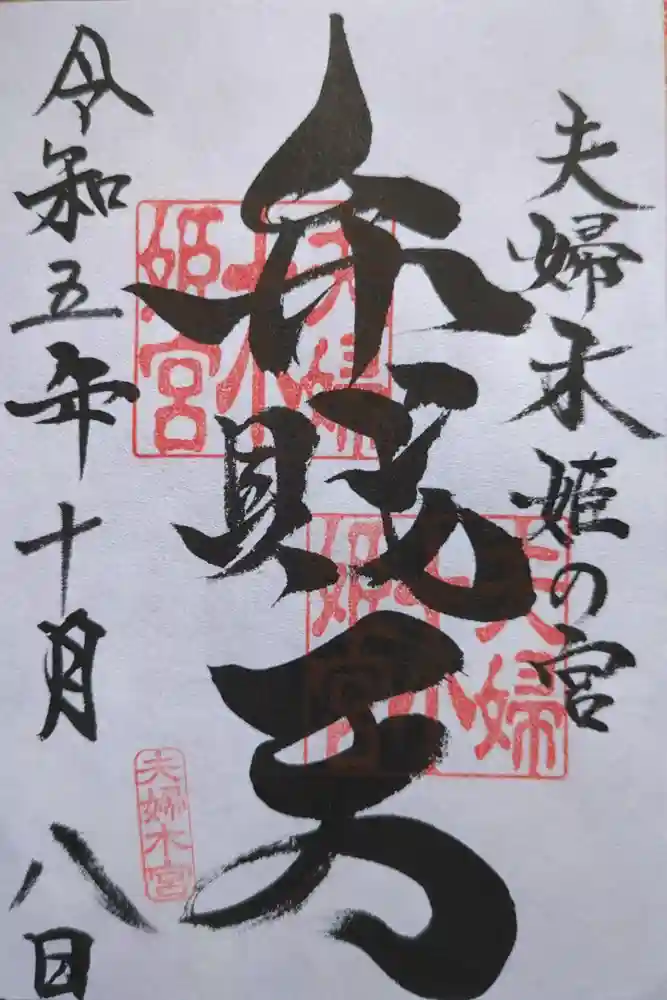 夫婦木姫の宮
弁財天
令和五年十月八日
夫婦木姫宮
夫婦木姫宮
夫婦木宮